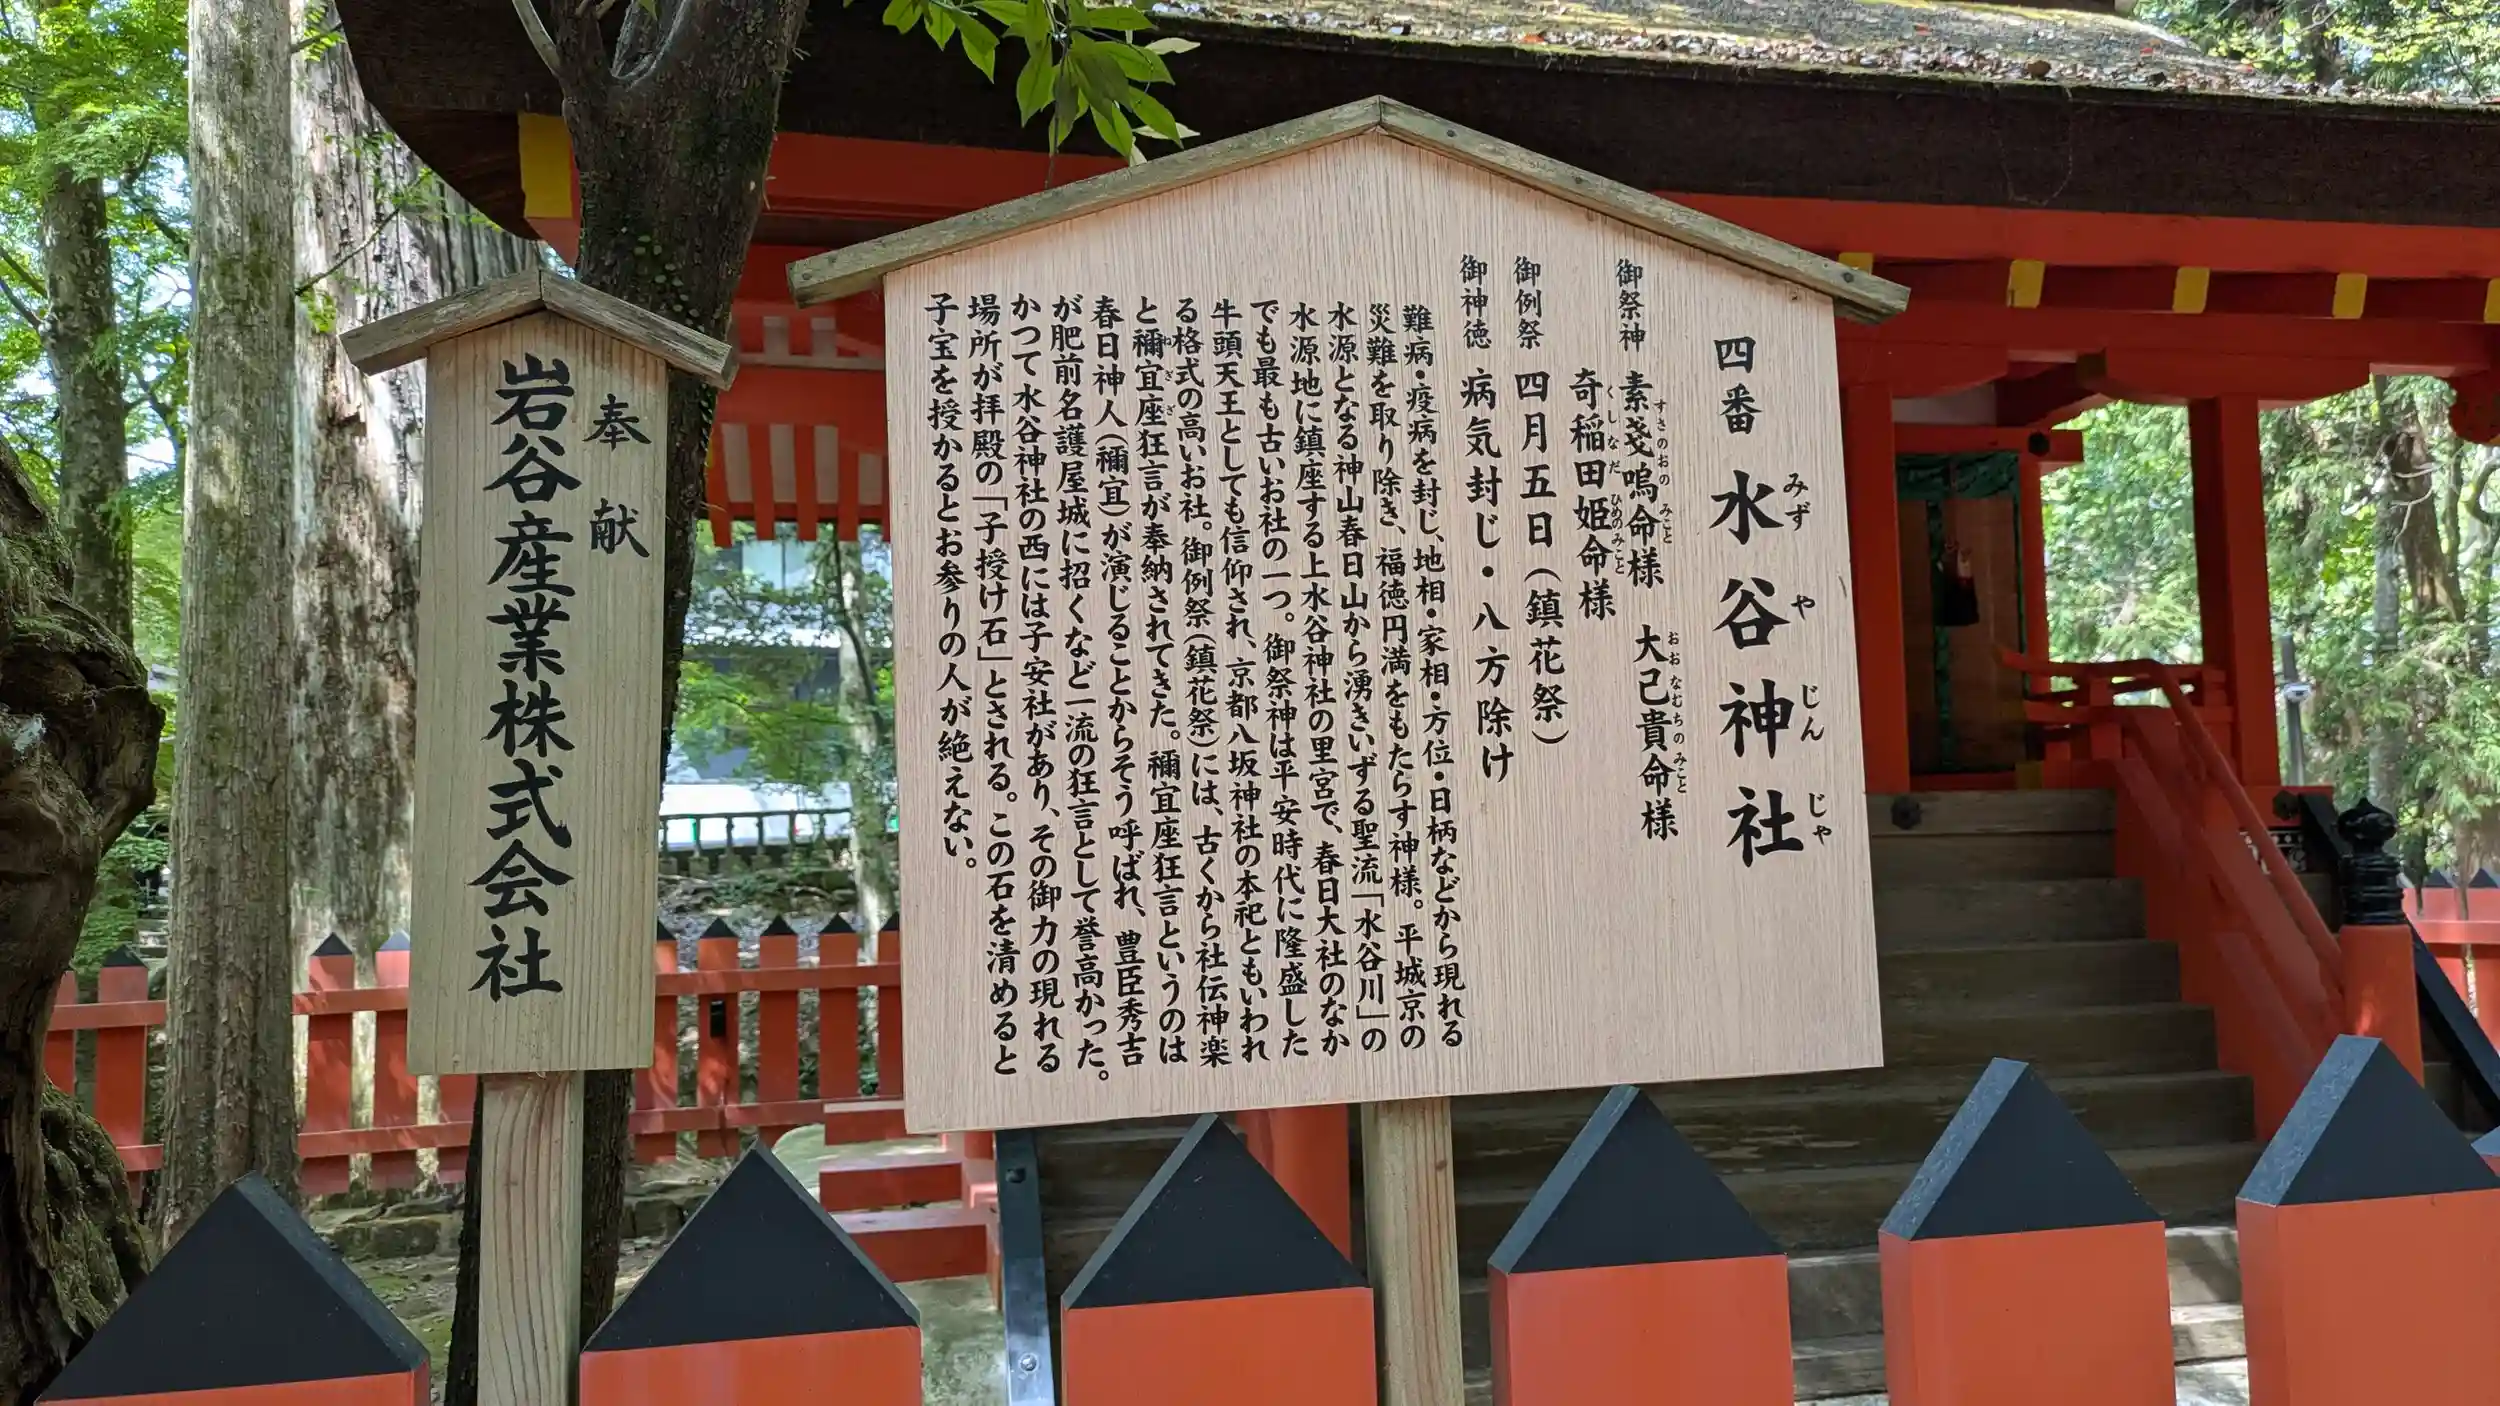 四番 水谷神社
みずやじんじゃ
御祭神 素戔嗚命様 大己貴命様
すさのおのみこと おおなむちのみこと
奇稲田姫命様
くしなだひめのみこと
御例祭 四月五日(鎮花祭)
御神徳 病気封じ・八方除け
難病・疫病を封じ、地相・家相・方位・日柄などから現れる
災難を取り除き、福徳円満をもたらす神様。平城京の
水源となる神山春日山から湧きいずる聖流「水谷川」の
水源地に鎮座する上水谷神社の里宮で、春日大社のなか
でも最も古いお社の一つ。御祭神は平安時代に隆盛した
牛頭天王としても信仰され、京都八坂神社の本祀ともいわれ
る格式の高いお社。御例祭(鎮花祭)には、古くから社伝神楽
と禰宜座狂言が奉納されてきた。禰宜座狂言というのは
ねぎざ
春日神人(禰宜)が演じることからそう呼ばれ、豊臣秀吉
が肥前名護屋城に招くなど一流の狂言として誉高かった。
かつて水谷神社の西には子安社があり、その御力の現れる
場所が拝殿の「子授け石」とされる。この石を清めると
子宝を授かるとお参りの人が絶えない。
奉献
岩谷産業株式会社